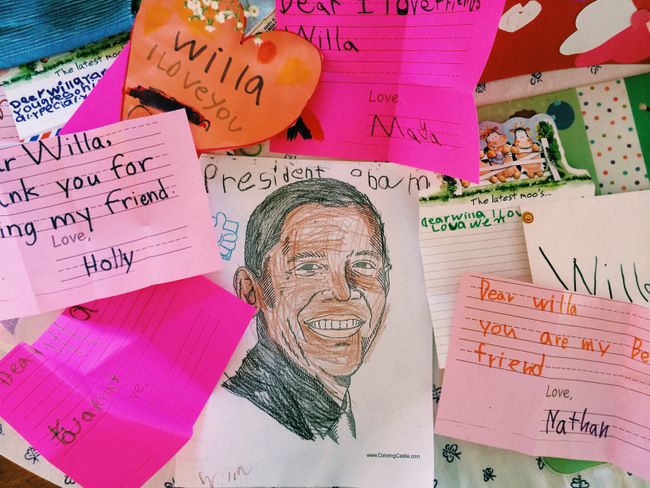 Dear I love friends
Willa
Love,
Maya
Willa
I Love you
The latest moo
Dear Willa
ar Willa,
nk you for
ing my friend
Love,
Holly
President obam
The latest moo's...
dear willa I Lov
Willa
Dear willa
you are my Be
friend
Love,
Nathan
Dear
ve,
www.ColoringCastle.com
Willa